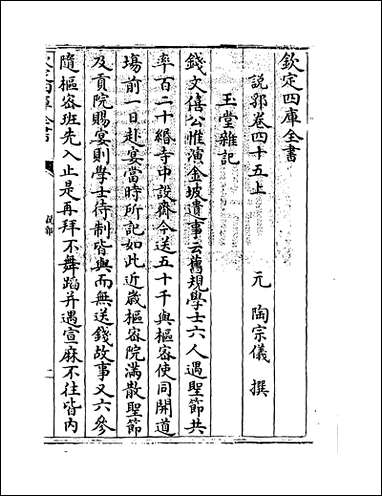 欽定四庫全書
說郛卷四十五上
元　陶宗儀　撰
玉堂雜記
錢文僖公惟演金坡遺事云舊規學士六人遇聖節共
率百二十緡寺中設齋今送五十千與樞密使同開道
塲前一日赴宴當時所記如此近歲樞密院滿散聖節
及貢院賜宴則學士待制皆與而無送錢故事又六參
隨樞密班先入止是再拜不舞蹈并遇宣麻不往皆内
欽定四庫全書
說郛